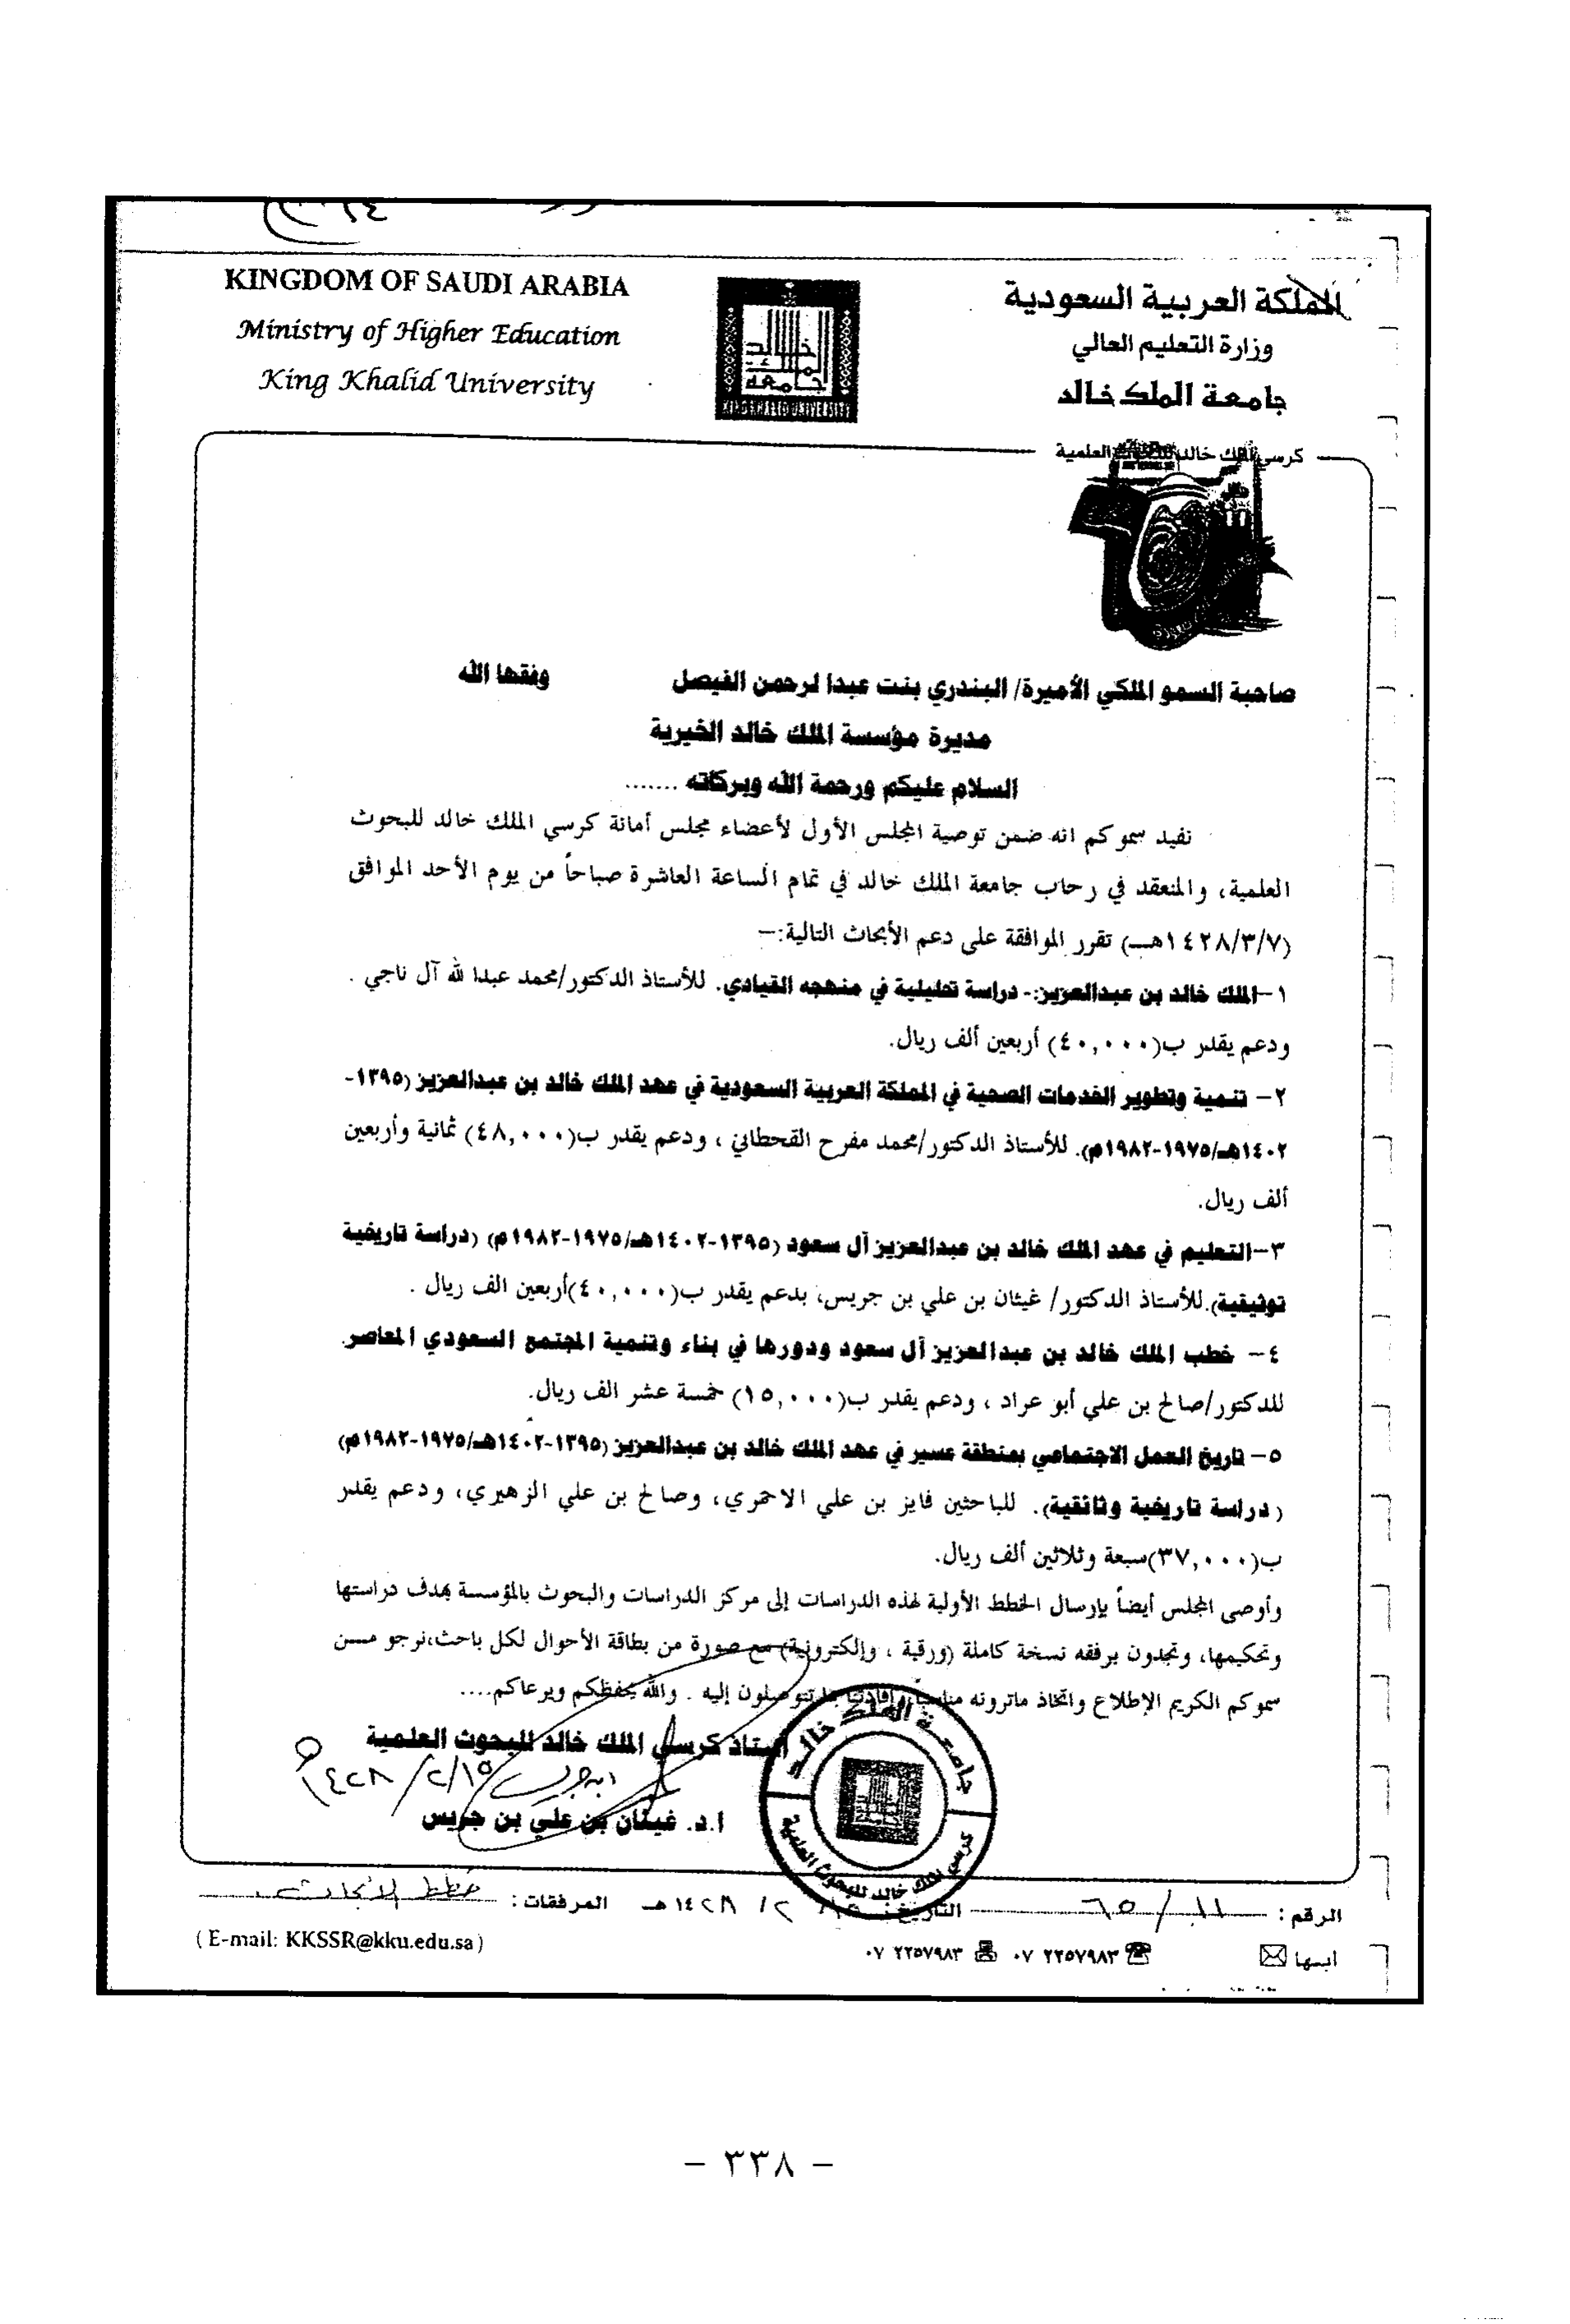 KINGDOM OF SAUDI ARABIA
Ministry of Higher Education
King Khalid University
المملكة العربية السعودية
وزارة التعليم العالي
جامعة الملك خالد
KING KHALID UNIVERSITY
كرسي الملك خالد للبحوث العلمية
صاحبة السمو الملكي الأميرة/ البندري بنت عبدا لرحمن الفيصل وفقها الله
مديرة مؤسسة الملك خالد الخيرية
السلام عليكم ورحمة الله وبركاته .......
نفيد سموكم انه ضمن توصية المجلس الأول لأعضاء مجلس أمانة كرسي الملك خالد للبحوث
العلمية، والمنعقد في رحاب جامعة الملك خالد في تمام الساعة العاشرة صباحاً من يوم الأحد الموافق
(١٤٢٨/٣/٧هـ) تقرر الموافقة على دعم الأبحاث التالية:–
١–الملك خالد بن عبدالعزيز:- دراسة تحليلية في منهجه القيادي. للأستاذ الدكتور/محمد عبدا لله آل ناجي .
ودعم يقدر ب(٤٠,٠٠٠) أربعين ألف ريال.
٢– تنمية وتطوير الخدمات الصحية في المملكة العربية السعودية في عهد الملك خالد بن عبدالعزيز (١٣٩٥-
١٤٠٢هـ/١٩٧٥-١٩٨٢م). للأستاذ الدكتور/محمد مفرح القحطاني ، ودعم يقدر ب(٤٨,٠٠٠) ثمانية وأربعين
ألف ريال.
٣–التعليم في عهد الملك خالد بن عبدالعزيز آل سعود (١٣٩٥-١٤٠٢هـ/١٩٧٥-١٩٨٢م) (دراسة تاريخية
توثيقية).للأستاذ الدكتور/ غيثان بن علي بن جريس، بدعم يقدر ب(٤٠,٠٠٠)أربعين الف ريال .
٤– خطب الملك خالد بن عبدالعزيز آل سعود ودورها في بناء وتنمية المجتمع السعودي المعاصر.
للدكتور/صالح بن علي أبو عراد ، ودعم يقدر ب(١٥,٠٠٠) خمسة عشر الف ريال.
٥– تاريخ العمل الاجتماعي بمنطقة عسير في عهد الملك خالد بن عبدالعزيز (١٣٩٥-١٤٠٢هـ/١٩٧٥-١٩٨٢م)
(دراسة تاريخية وثائقية). للباحثين فايز بن علي الاحمري، وصالح بن علي الزهيري، ودعم يقدر
ب(٣٧,٠٠٠)سبعة وثلاثين ألف ريال.
وأوصى المجلس أيضاً بإرسال الخطط الأولية لهذه الدراسات إلى مركز الدراسات والبحوث بالمؤسسة بهدف دراستها
وتحكيمها، وتجدون برفقه نسخة كاملة (ورقية ، وإلكترونية) مع صورة من بطاقة الأحوال لكل باحث،نرجو مـن
سموكم الكريم الإطلاع واتخاذ ماترونه مناسباً وإفادتنا بما تتوصلون إليه . والله يحفظكم ويرعاكم....
أستاذ كرسي الملك خالد للبحوث العلمية
١٤٢٨/٢/١٥
أ.د. غيثان بن علي بن جريس
جامعة الملك خالد
كرسي الملك خالد للبحوث العلمية
الرقم : ١١ / ٦٥ التاريخ: ١٥ / ٢ / ١٤٢٨ هـ المرفقات: خطط الأبحاث.
ابـها ٠٧ ٢٢٥٧٩٨٣ ٠٧ ٢٢٥٧٩٨٣ (E-mail: KKSSR@kku.edu.sa)
– ٣٣٨ –